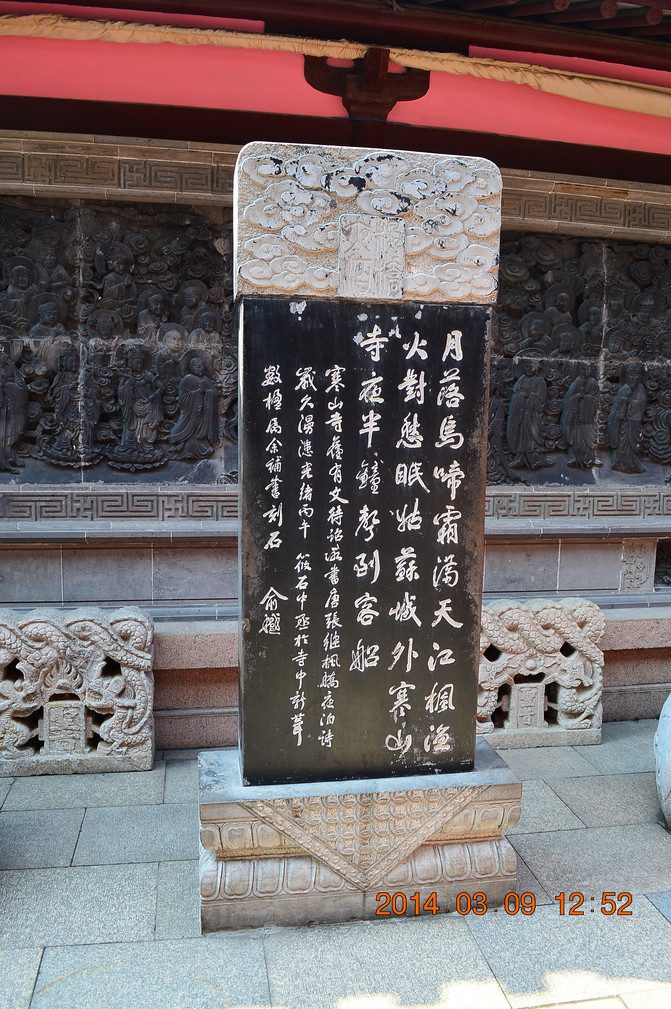 月落烏啼霜滿天江楓漁
火對愁眠姑蘇城外寒山
寺夜半鐘聲到客船
寒山寺舊有文待詔所書唐張繼楓橋夜泊詩
歲久漫漶光緒丙午筱石中丞於寺中新葺
數楹屬余補書刻石
俞樾
2014.03.09 12:52